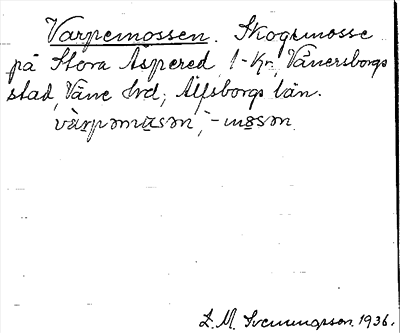 Varpemossen. Skogsmosse
på Stora Aspered, 1-Kr, Vänersborgs
stad, Väne hrd, Älfsborgs län.
vàrpəmåsən, -måsən.
L. M. Svenungsson. 1936.